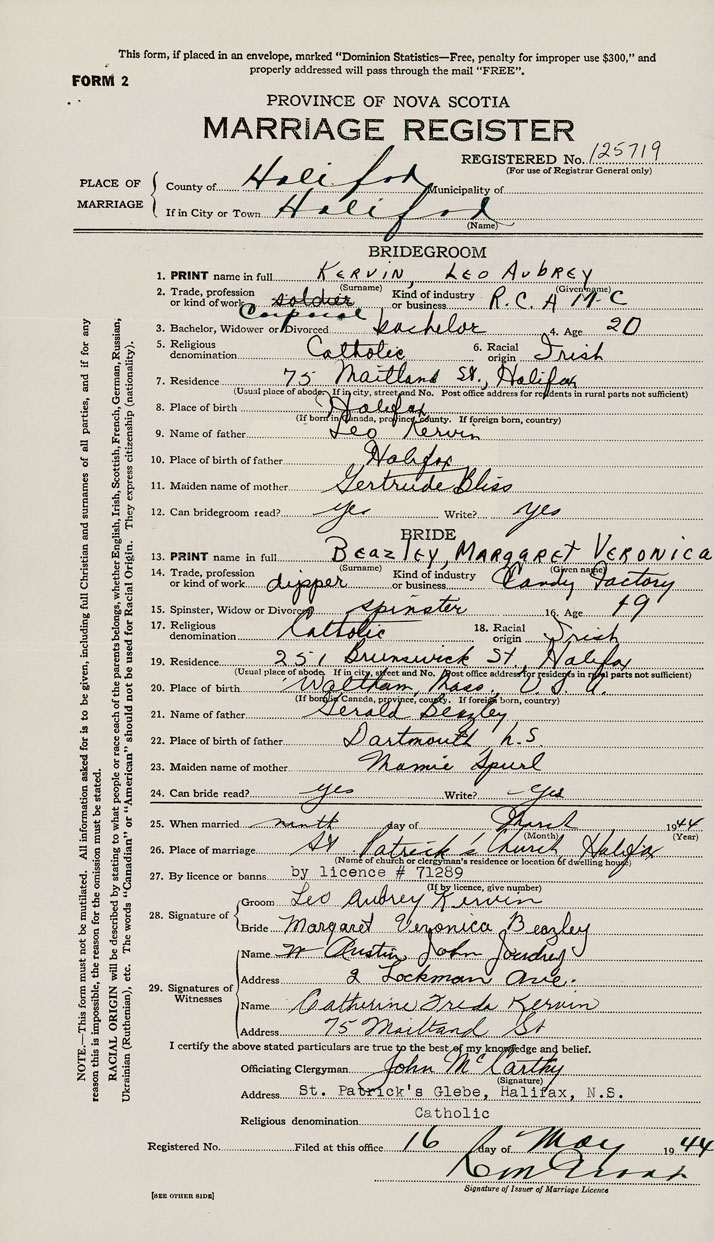 This form, if placed in an envelope, marked "Dominion Statistics—Free, penalty for improper use $300," and
properly addressed will pass through the mail "FREE".
FORM 2
PROVINCE OF NOVA SCOTIA
MARRIAGE REGISTER
REGISTERED No. 125719
(For use of Registrar General only)
PLACE OF MARRIAGE
County of Halifax Municipality of
If in City or Town Halifax
(Name)
BRIDEGROOM
1. PRINT name in full KERVIN, LEO AUBREY
(Surname) (Given name)
2. Trade, profession or kind of work soldier Corporal Kind of industry or business R. C. A M C
3. Bachelor, Widower or Divorced bachelor 4. Age 20
5. Religious denomination Catholic 6. Racial origin Irish
7. Residence 75 Maitland St., Halifax
(Usual place of abode. If in city, street and No. Post office address for residents in rural parts not sufficient)
8. Place of birth Halifax
(If born in Canada, province, county. If foreign born, country)
9. Name of father Leo Kervin
10. Place of birth of father Halifax
11. Maiden name of mother Gertrude Bliss
12. Can bridegroom read? yes Write? yes
BRIDE
13. PRINT name in full BEAZLEY, MARGARET VERONICA
(Surname) (Given name)
14. Trade, profession or kind of work dipper Kind of industry or business Candy Factory
15. Spinster, Widow or Divorced spinster 16. Age 19
17. Religious denomination Catholic 18. Racial origin Irish
19. Residence 251 Brunswick St., Halifax
(Usual place of abode. If in city, street and No. Post office address for residents in rural parts not sufficient)
20. Place of birth Waltham, Mass., U. S. A.
(If born in Canada, province, county. If foreign born, country)
21. Name of father Gerald Beazley
22. Place of birth of father Dartmouth N.S.
23. Maiden name of mother Mamie Spurl
24. Can bride read? yes Write? yes
25. When married ninth day of 1944
(Month) (Year)
26. Place of marriage St Patrick's Church, Halifax
(Name of church or clergyman's residence or location of dwelling house)
27. By licence or banns by licence # 71289
(If by licence, give number)
28. Signature of Groom Leo Aubrey Kervin
Bride Margaret Veronica Beazley
29. Signatures of Witnesses
Name Austin John
Address 2 Lockman Ave.
Name Catherine Freda Kervin
Address 75 Maitland St
I certify the above stated particulars are true to the best of my knowledge and belief.
Officiating Clergyman John McCarthy
(Signature)
Address St. Patrick's Glebe, Halifax, N.S.
Religious denomination Catholic
Registered No. Filed at this office 16 day of May 1944
Signature of Issuer of Marriage Licence
[SEE OTHER SIDE]
NOTE.—This form must not be mutilated. All information asked for is to be given, including full Christian and surnames of all parties, and if for any
reason this is impossible, the reason for the omission must be stated.
RACIAL ORIGIN will be described by stating to what people or race each of the parents belongs, whether English, Irish, Scottish, French, German, Russian,
Ukrainian (Ruthenian), etc. The words "Canadian" or "American" should not be used for Racial Origin. They express citizenship (nationality).